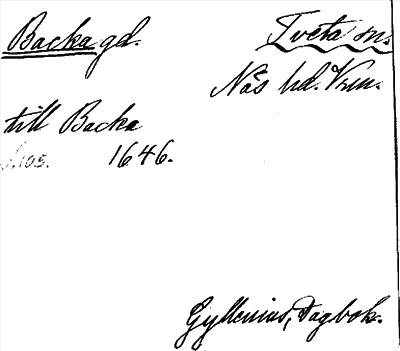 Backa gd. Tveta sn.
Näs hd. Vrm.
till Backa
s. 105. 1646.
Gyllenius, Dagbok.